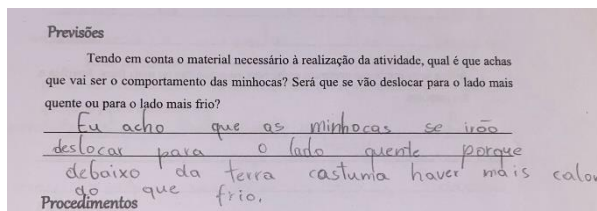 Previsões
Tendo em conta o material necessário à realização da atividade, qual é que achas
que vai ser o comportamento das minhocas? Será que se vão deslocar para o lado mais
quente ou para o lado mais frio?
Eu acho que as minhocas se irão
deslocar para o lado quente porque
debaixo da terra castuma haver mais calor
do que frio.
Procedimentos